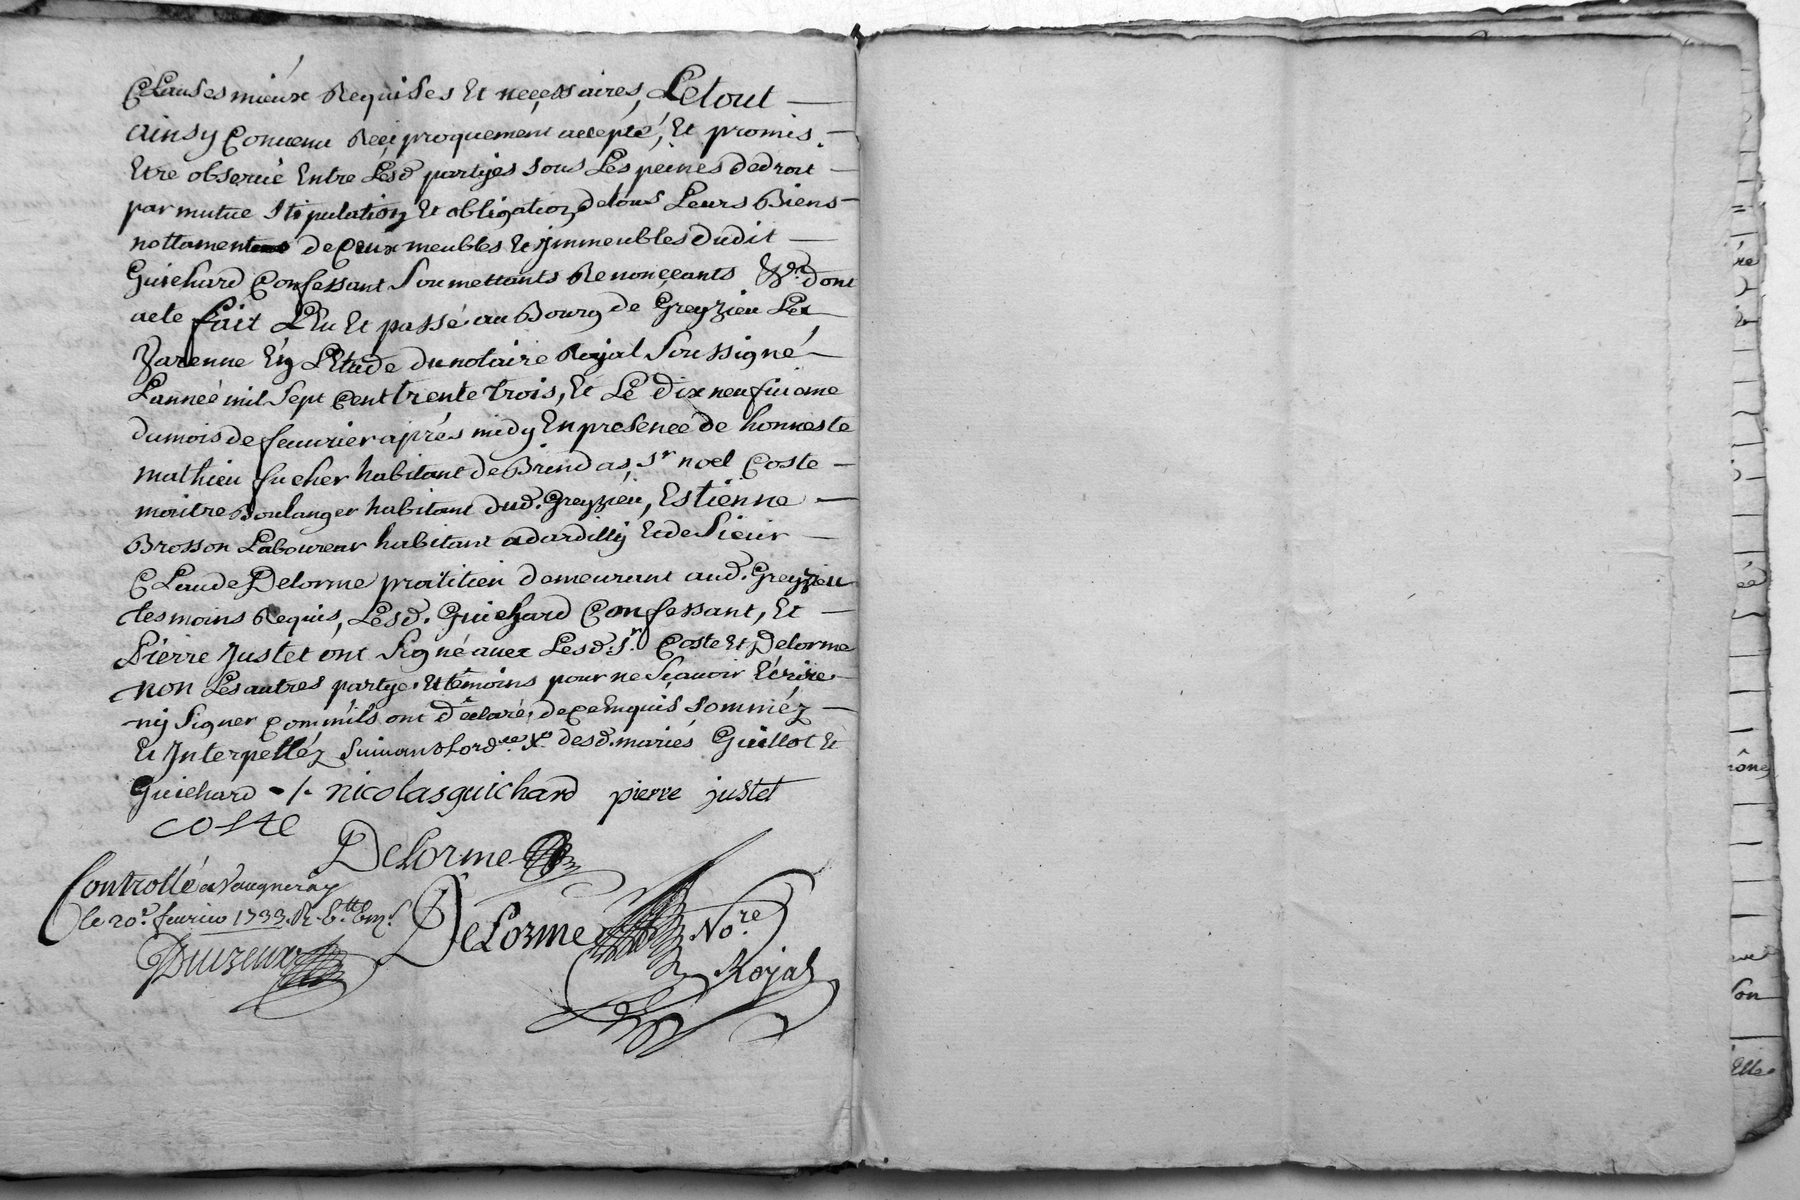 Clauses mieux Requises Et neçessaires, Le tout
ainsy Convenu Reciproquement accepté, Et promis
Etre observé Entre Lesd partyes sous Les peines de droit
par mutue stipulation Et obligation de tous Leurs Biens
nottament de Ceux meubles Et jmmeubles dudit
Guichard Confessant Soumettants Renonçeants &c. dont
acte fait Leu Et passé au Bourg de Greyzieu La
Varenne En L'Etude du notaire Royal Soussigné
L'année mil Sept Cent trente trois, Et Le dix neufviême
du mois de feuvrier après midy En presence de honneste
mathieu fucher habitant de Brindas, Sr noel Coste
maitre Boulanger habitant dud. Greyzieu, Estienne
Brosson Laboureur habitant a dardilly Et de Sieur
Claude Delorme pratitien demeurant aud. Greyzieu
tesmoins Requis, Lesd. Guichard Confessant, Et
Pierre Justet ont Signé avec Lesd. Sr. Coste Et Delorme
non Les autres partye. Et têmoins pour ne Sçavoir Ecrire
ny Signer Comm'ils ont dêclaré, de ce Enquis sommêz
Et Interpelléz Suivans L'ordce. Xo. desd. mariés Guillot Et
Guichard -/. nicolas guichard pierre justet
coste
Delorme
Controllé a Vaugneray
le 20e. feuvrier 1733. R.
DeLorme No.re
Royal